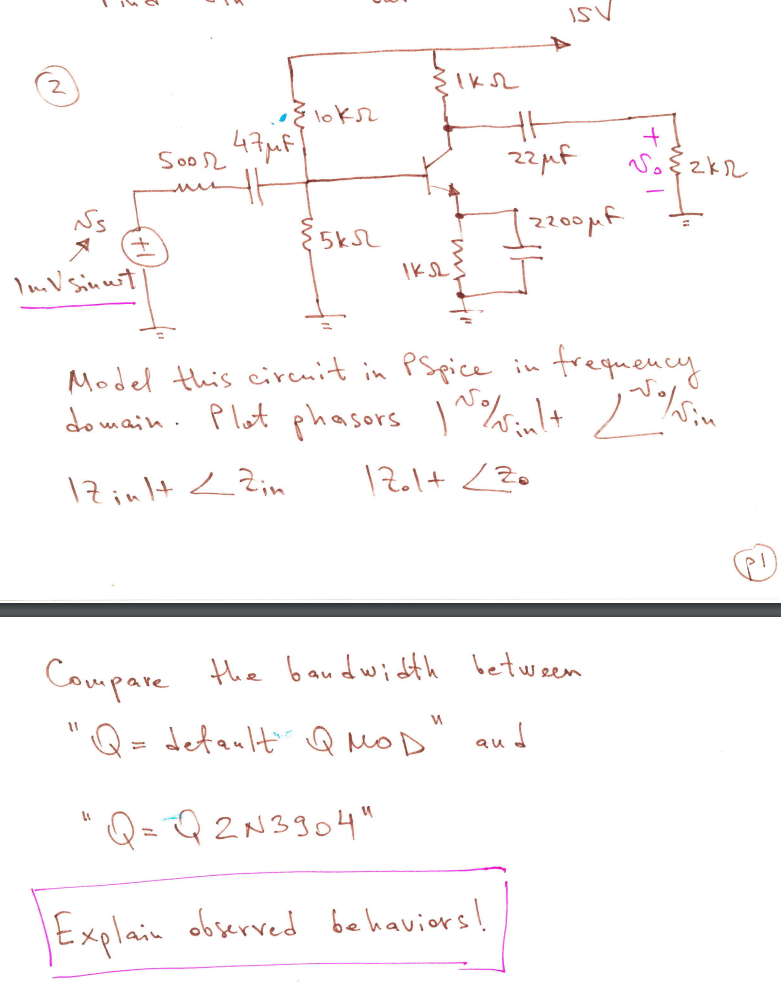 15V
2
1kΩ
10kΩ
47μF
500Ω
22μF
+
Vo
2kΩ
-
Vs
±
5kΩ
2200μF
1kΩ
1mV sinωt
Model this circuit in PSpice in frequency
domain. Plot phasors |Vo/Vin|+ ∠Vo/Vin
|Zin|+ ∠Zin |Zo|+ ∠Zo
p1
Compare the bandwidth between
"Q = default QMOD" and
"Q = Q2N3904"
Explain observed behaviors!